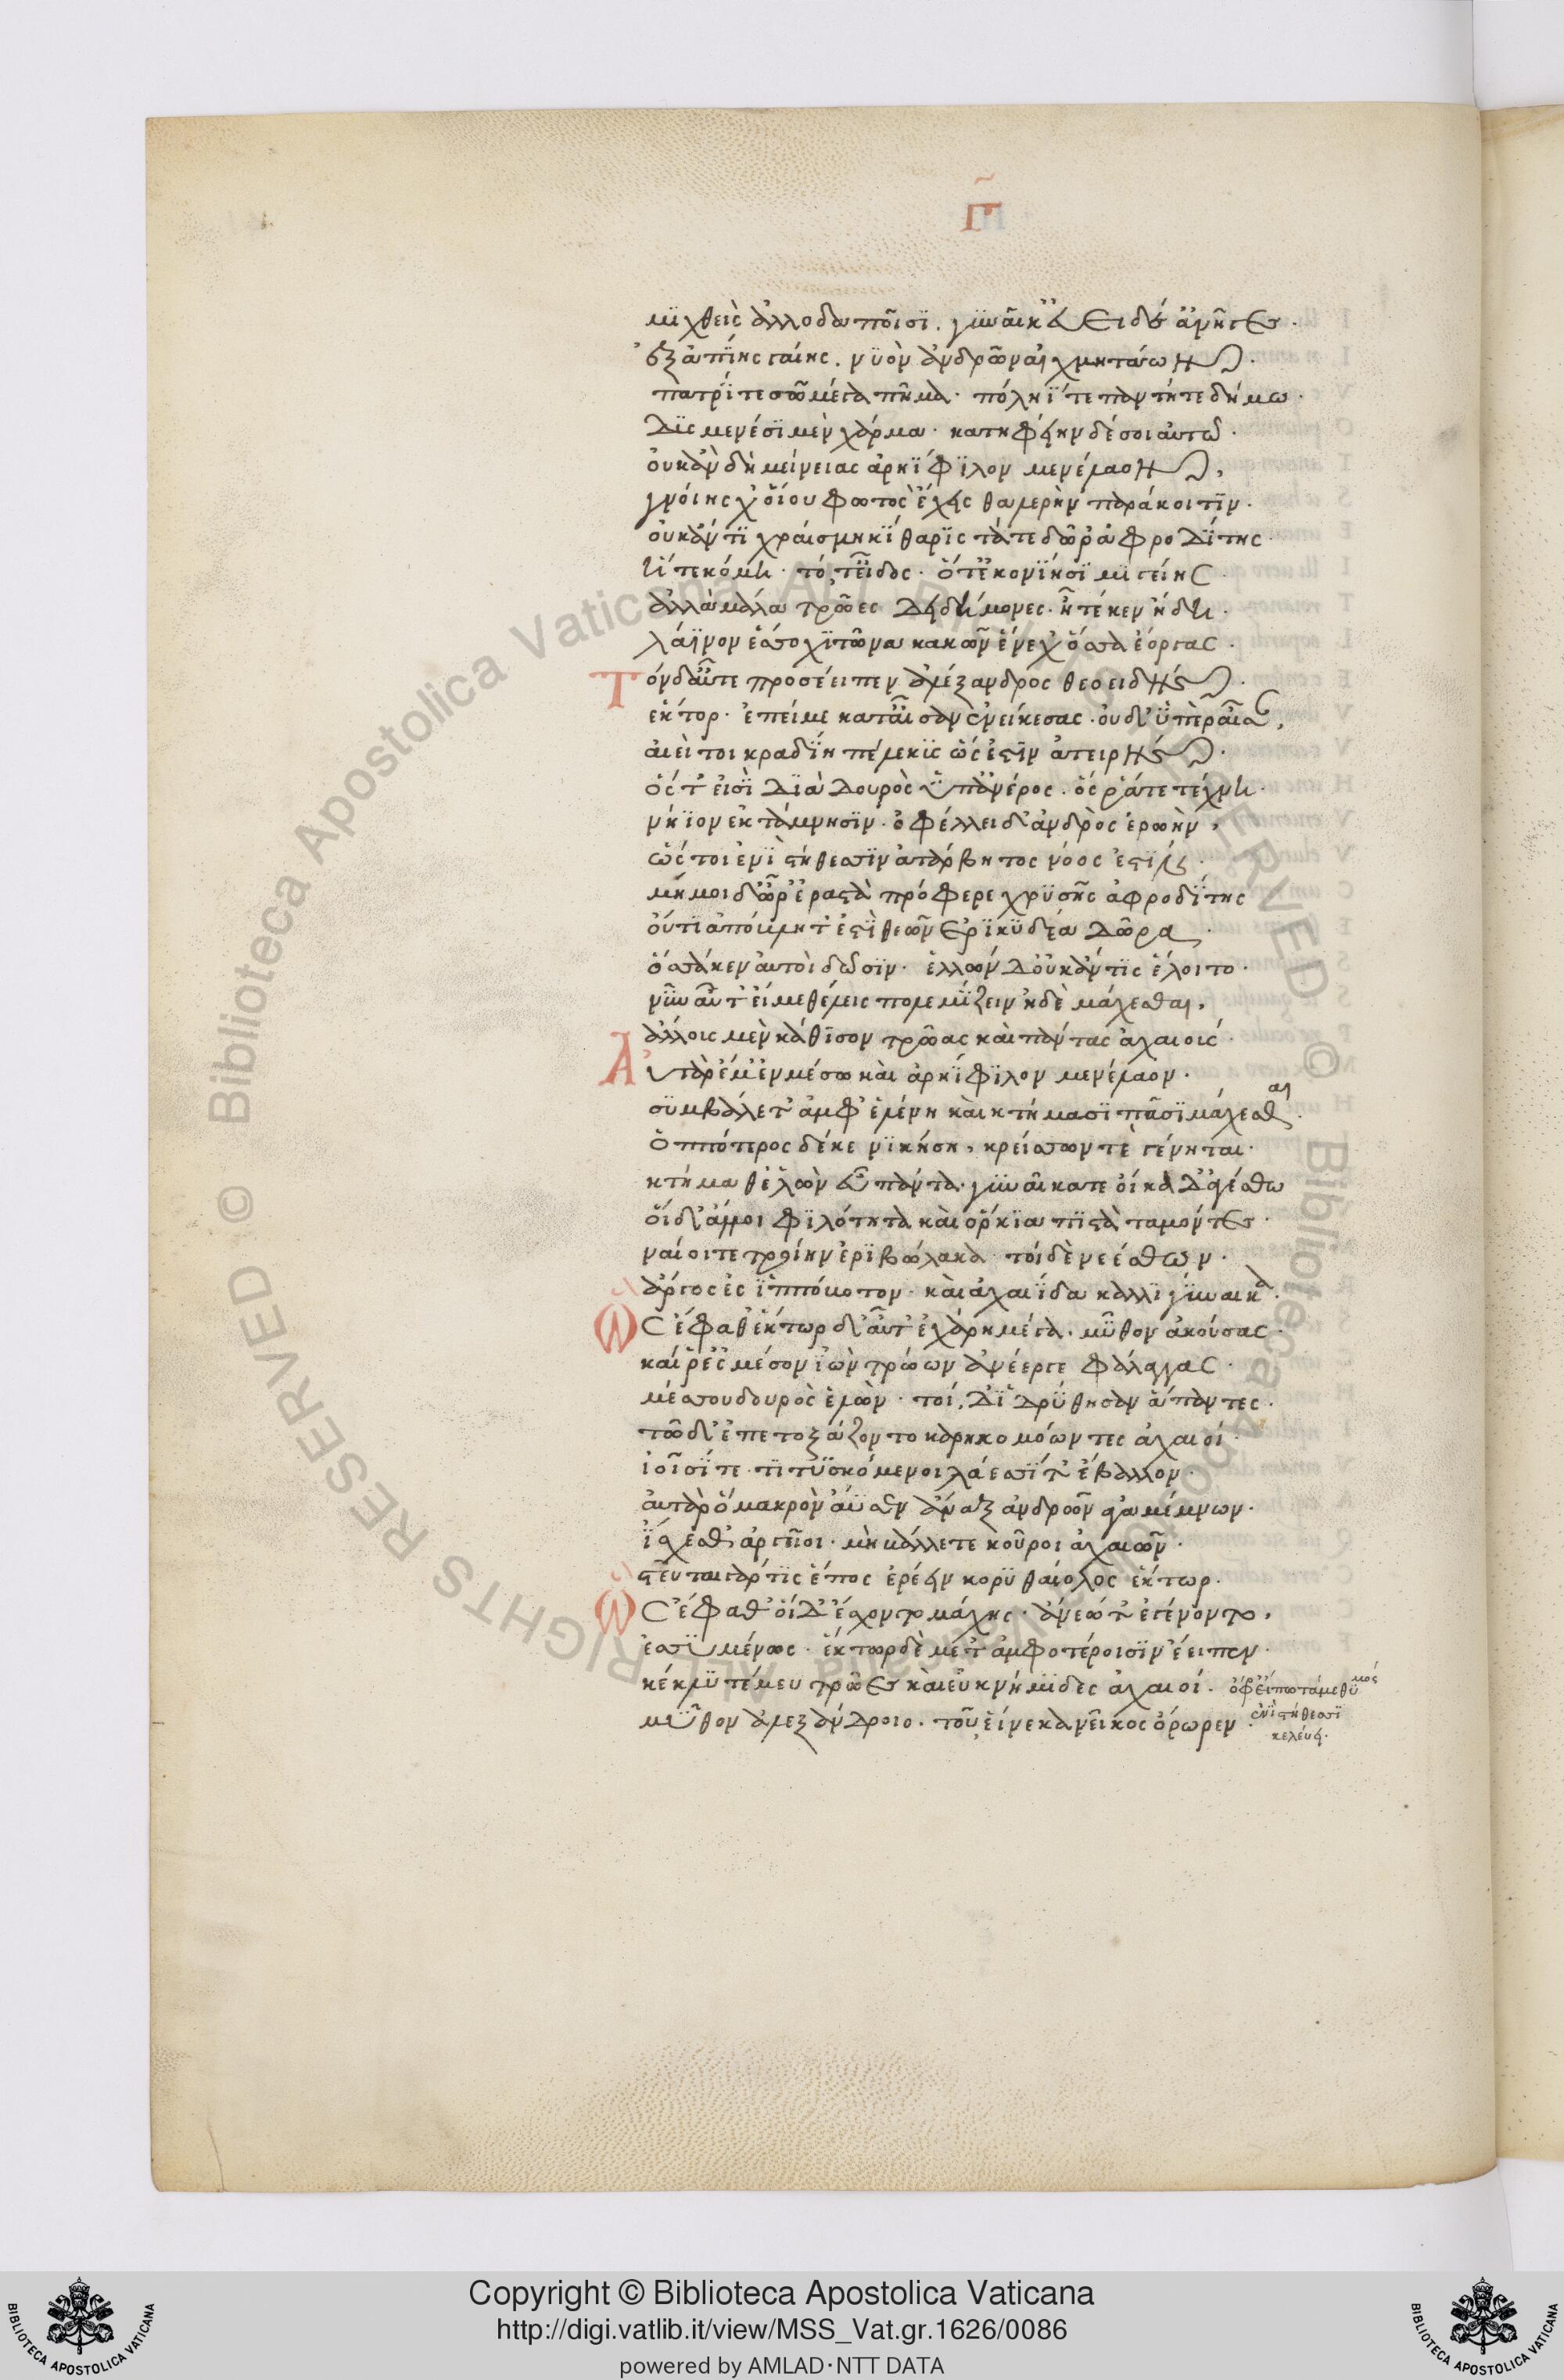 Γ
μϊχθεὶς ἀλλοδαποῖσϊ. γυναῖκ' εὐειδέ' ἀνῆγες.
ἐξ ἀπίης γαίης. νϋὸν ἀνδρῶν αἰχμητάων.
πατρί τε σῶ μέγα πῆμα. πόληΐ τε παντί τε δήμω.
δϋσμενέσϊ μὲν χάρμα. κατηφείην δέ σοι αὐτῶ.
οὐκ ἂν δὴ μείνειας ἀρηΐφϊλον μενέλαον,
γνοίης χ' οἵου φωτὸς ἔχεις θαλερὴν παράκοιτϊν.
οὐκ ἄν τϊ χραίσμη κίθαρϊς τά τε δῶρ' ἀφροδίτης.
ἥ τε κόμη. τό, τ' εἶδος. ὅτ' ἐν κονίησϊ μϊγείης
ἀλλὰ μάλα τρῶες δειδήμονες. ἦ τέ κεν ἤδη.
λάϊνον ἕσσο χϊτῶνα κακῶν ἕνεχ' ὅσσα ἔοργας.
Τόνδ' αὖτε προσέειπεν ἀλέξανδρος θεοειδής.
ἕκτορ. ἐπεί με κατ' αἶσαν ἐνείκεσας. οὐδ' ὑπὲρ αἶσαν,
αἰεί τοι κραδίη πέλεκϋς ὥς ἐστιν ἀτειρής.
ὅς τ' εἶσϊ δϊὰ δουρὸς ὑπ' ἀνέρος. ὅς ῥά τε τέχνη.
νήϊον ἐκτάμνησϊν. ὀφέλλει δ' ἀνδρὸς ἐρωὴν,
ὥς τοι ἐνϊ στήθεσσϊν ἀτάρβητος νόος ἐστί.
μή μοι δῶρ' ἐραστὰ πρόφερε χρϋσῆς ἀφροδίτης
οὔτι ἀπόβλητ' ἐστὶ θεῶν ἐρϊκϋδέα δῶρα.
ὅσσά κεν αὐτοὶ δῶσϊν. ἑλλὼν δ' οὐκ ἄν τϊς ἕλοιτο.
νῦν αὖτ' εἴ με θέλεις πολεμίζειν ἠδὲ μάχεσθαι,
ἄλλους μὲν κάθϊσον τρῶας καὶ πάντας ἀχαιούς.
Αὐτὰρ ἔμ' ἐν μέσω καὶ ἀρηΐφϊλον μενέλαον.
σϋμβάλετ' ἀμφ' ἑλένη καὶ κτήμασϊ πᾶσϊ μάχεσθαι.
ὁππότερος δέ κε νϊκήση, κρείσσων τὲ γένηται.
κτήμαθ' ἑλὼν εὖ πάντα. γυναῖκά τε οἴκαδ' ἀγέσθω
οἱ δ' ἄλλοι φϊλότητα καὶ ὅρκϊα πϊστὰ ταμόντες.
ναίοιτε τροίην ἐρϊβώλακα. τοὶ δὲ νεέσθων.
ἄργος ἐς ἱππόβοτον. καὶ ἀχαιΐδα καλλϊγύναικα.
Ὣς ἔφαθ' ἕκτωρ δ' αὖτ' ἐχάρη μέγα. μῦθον ἀκούσας.
καί ῥ' ἐς μέσον ἰὼν τρώων ἀνέεργε φάλαγγας.
μέσσου δουρὸς ἑλὼν. τοί, δ' ἱδρϋθησαν ἅπαντες.
τῶ δ' ἐπετοξάζοντο κάρηκομόωντες ἀχαιοί.
ἰοῖσΐ τε τϊτϋσκόμενοι λάεσσΐ τ' ἔβαλλον.
αὐτὰρ ὃ μακρὸν ἄϋσεν ἄναξ ἀνδρῶν ἀγαμέμνων.
ἴσχεσθ' ἀργεῖοι. μὴ βάλλετε κοῦροι ἀχαιῶν.
στεῦται γάρ τϊς ἔπος ἐρέειν κορϋθαίολος ἕκτωρ.
Ὣς ἔφαθ' οἱ δ' ἔσχοντο μάχης. ἄνεώ τ' ἐγένοντο,
ἐσσϋμένως. ἕκτωρ δὲ μετ' ἀμφοτέροισϊν ἔειπεν.
κέκλϋτέ μευ τρῶες καὶ εὐκνήμϊδες ἀχαιοί. ὄφρ' εἴπω τά με θϋμὸς
ἐνὶ στήθεσσϊ
κελεύει.
μῦθον ἀλεξάνδροιο. τοῦ εἵνεκα νεῖκος ὄρωρεν.
Copyright © Biblioteca Apostolica Vaticana
http://digi.vatlib.it/view/MSS_Vat.gr.1626/0086
powered by AMLAD·NTT DATA